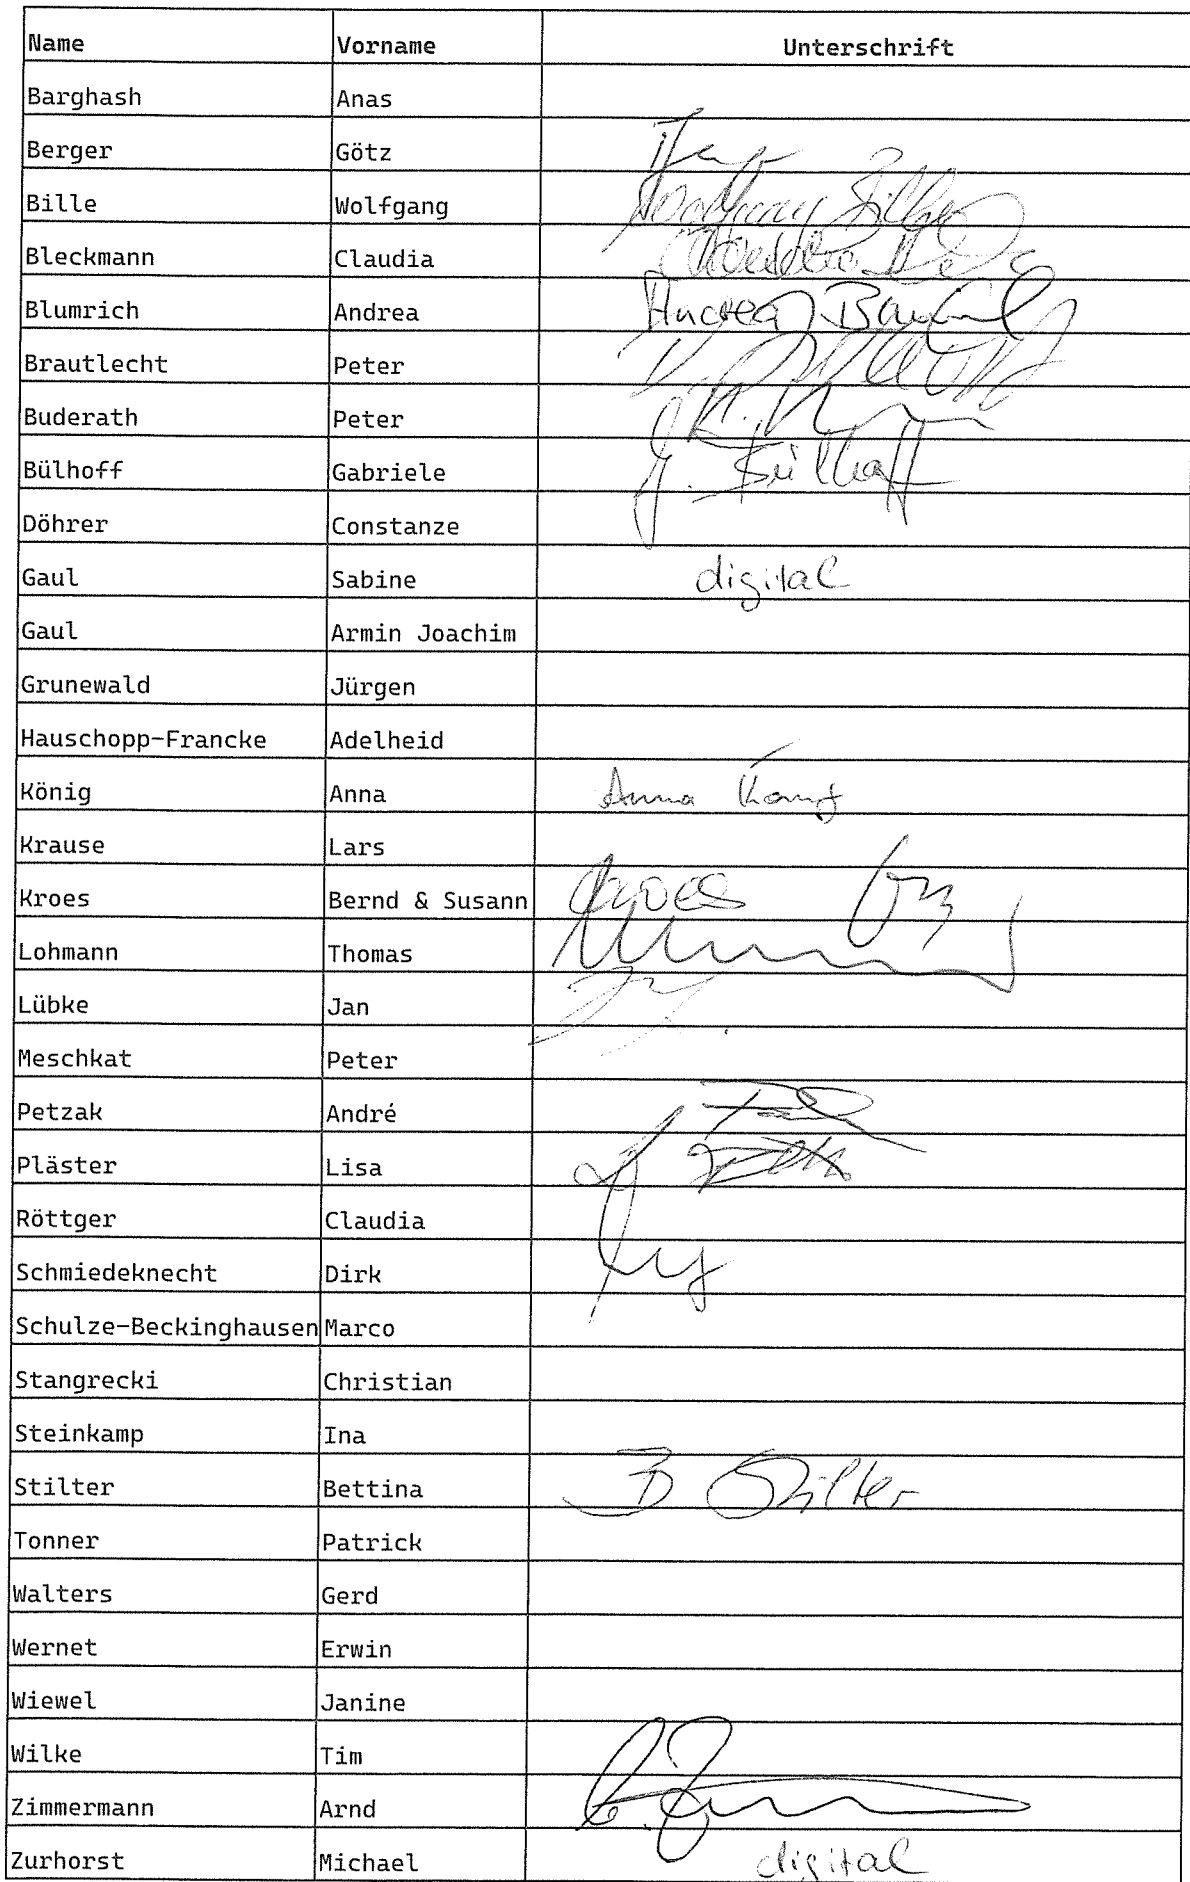 Name Vorname Unterschrift
Barghash Anas
Berger Götz
Bille Wolfgang Wolfgang Bille
Bleckmann Claudia Claudia
Blumrich Andrea Andrea
Brautlecht Peter
Buderath Peter
Bülhoff Gabriele G. Bülhoff
Döhrer Constanze
Gaul Sabine digital
Gaul Armin Joachim
Grunewald Jürgen
Hauschopp-Francke Adelheid
König Anna Anna König
Krause Lars
Kroes Bernd & Susann Kroes
Lohmann Thomas
Lübke Jan
Meschkat Peter
Petzak André
Pläster Lisa
Röttger Claudia
Schmiedeknecht Dirk
Schulze-Beckinghausen Marco
Stangrecki Christian
Steinkamp Ina
Stilter Bettina B Stilter
Tonner Patrick
Walters Gerd
Wernet Erwin
Wiewel Janine
Wilke Tim
Zimmermann Arnd
Zurhorst Michael digital